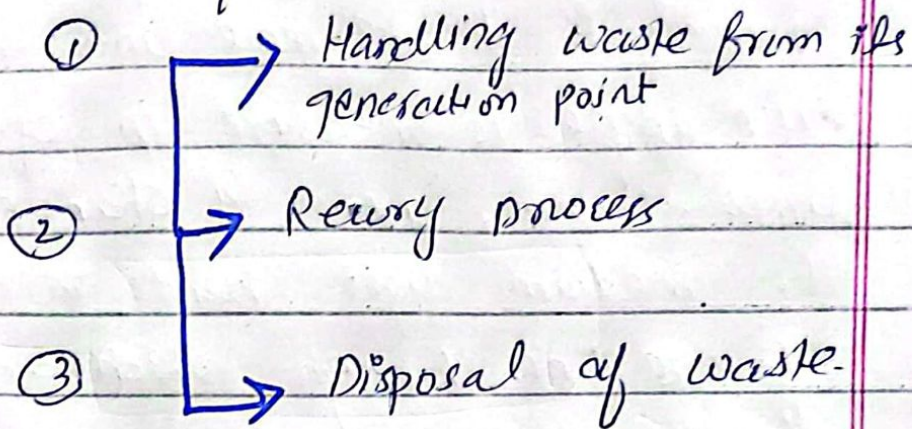 ① Handling waste from its
generation point
② Recovry process
③ Disposal of waste.